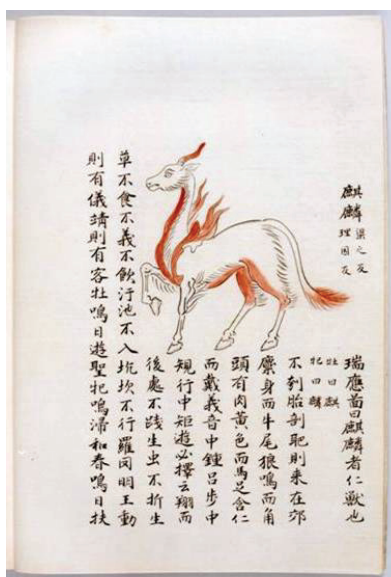 麒麟
渠之反
理因反
瑞應啚曰麒麟者仁獸也
牡曰麒
牝曰麟
不刳胎剖肥則來在郊
麇身而牛尾狼鳴而角
頭有肉黃色而馬足含仁
而戴義音中鍾呂步中
規行中矩遊必擇云翔而
後處不踐生虫不折生
草不食不義不飲汙池不入坑坎不行羅罔明王動
則有儀靖則有客牡鳴曰遊聖牝鳴和春鳴曰扶